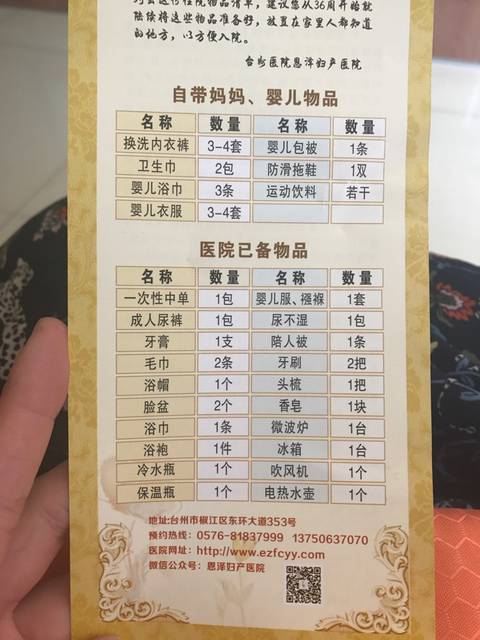 陆续将这些物品准备好，放置在家里人都知道
的地方，以方便入院。
台州医院恩泽妇产医院
自带妈妈、婴儿物品
名称 数量 名称 数量
换洗内衣裤 3-4套 婴儿包被 1条
卫生巾 2包 防滑拖鞋 1双
婴儿浴巾 3条 运动饮料 若干
婴儿衣服 3-4套
医院已备物品
名称 数量 名称 数量
一次性中单 1包 婴儿服、襁褓 1套
成人尿裤 1包 尿不湿 1包
牙膏 1支 陪人被 1条
毛巾 2条 牙刷 2把
浴帽 1个 头梳 1把
脸盆 2个 香皂 1块
浴巾 1条 微波炉 1台
浴袍 1件 冰箱 1台
冷水瓶 1个 吹风机 1个
保温瓶 1个 电热水壶 1个
地址:台州市椒江区东环大道353号
预约热线：0576-81837999 13750637070
医院网址：http://www.ezfcyy.com
微信公众号：恩泽妇产医院